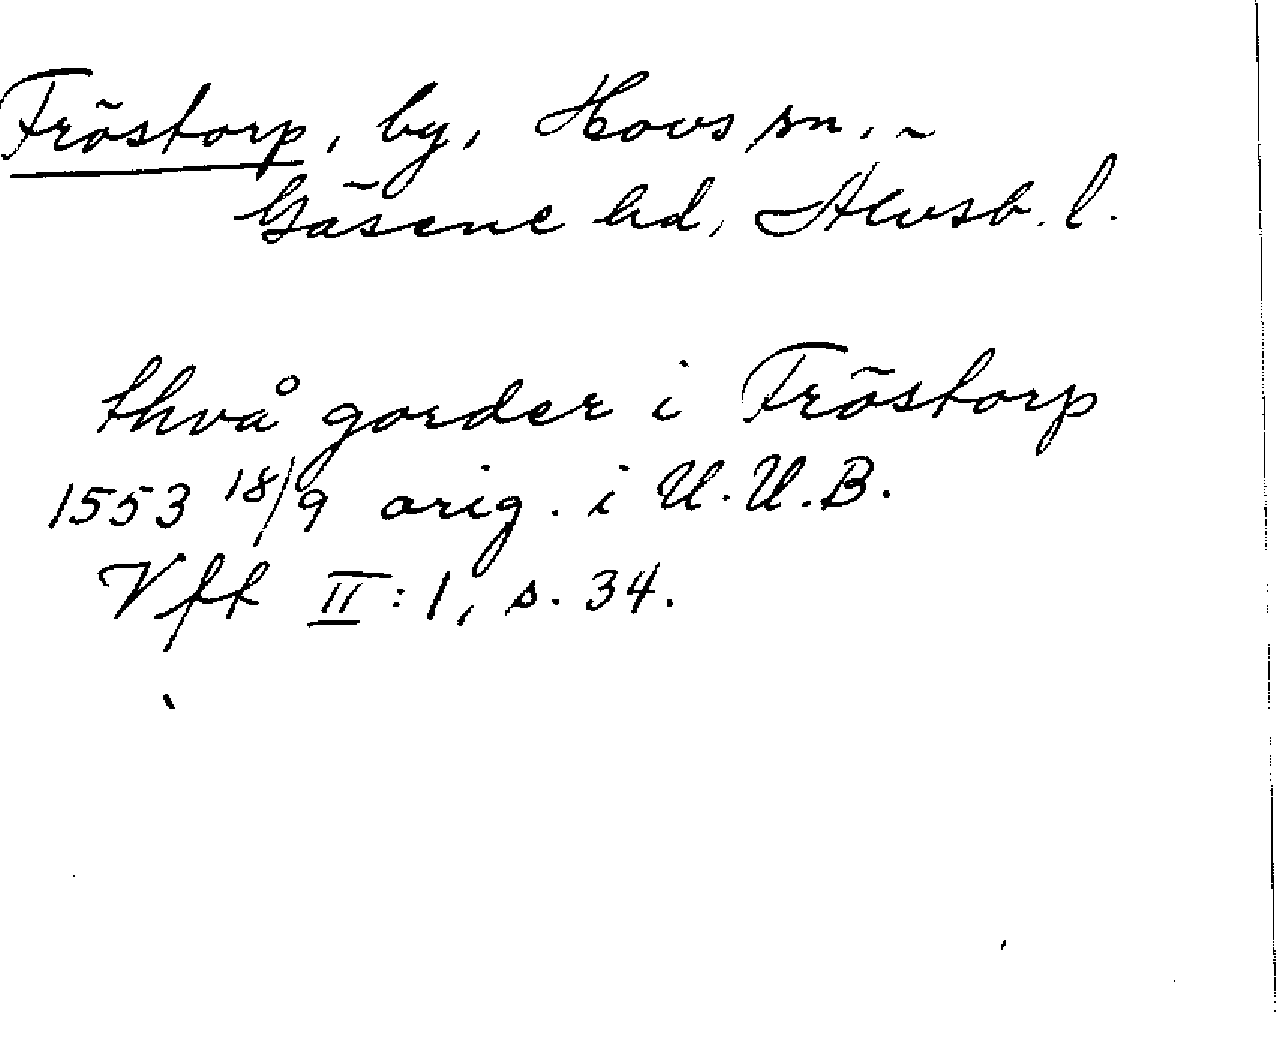 Fröstorp, by, Hovs sn.
Gäsene hd, Älvsb. l.
thvå gorder i Fröstorp
1553 18/9 orig. i U.U.B.
Vft II:1, s. 34.